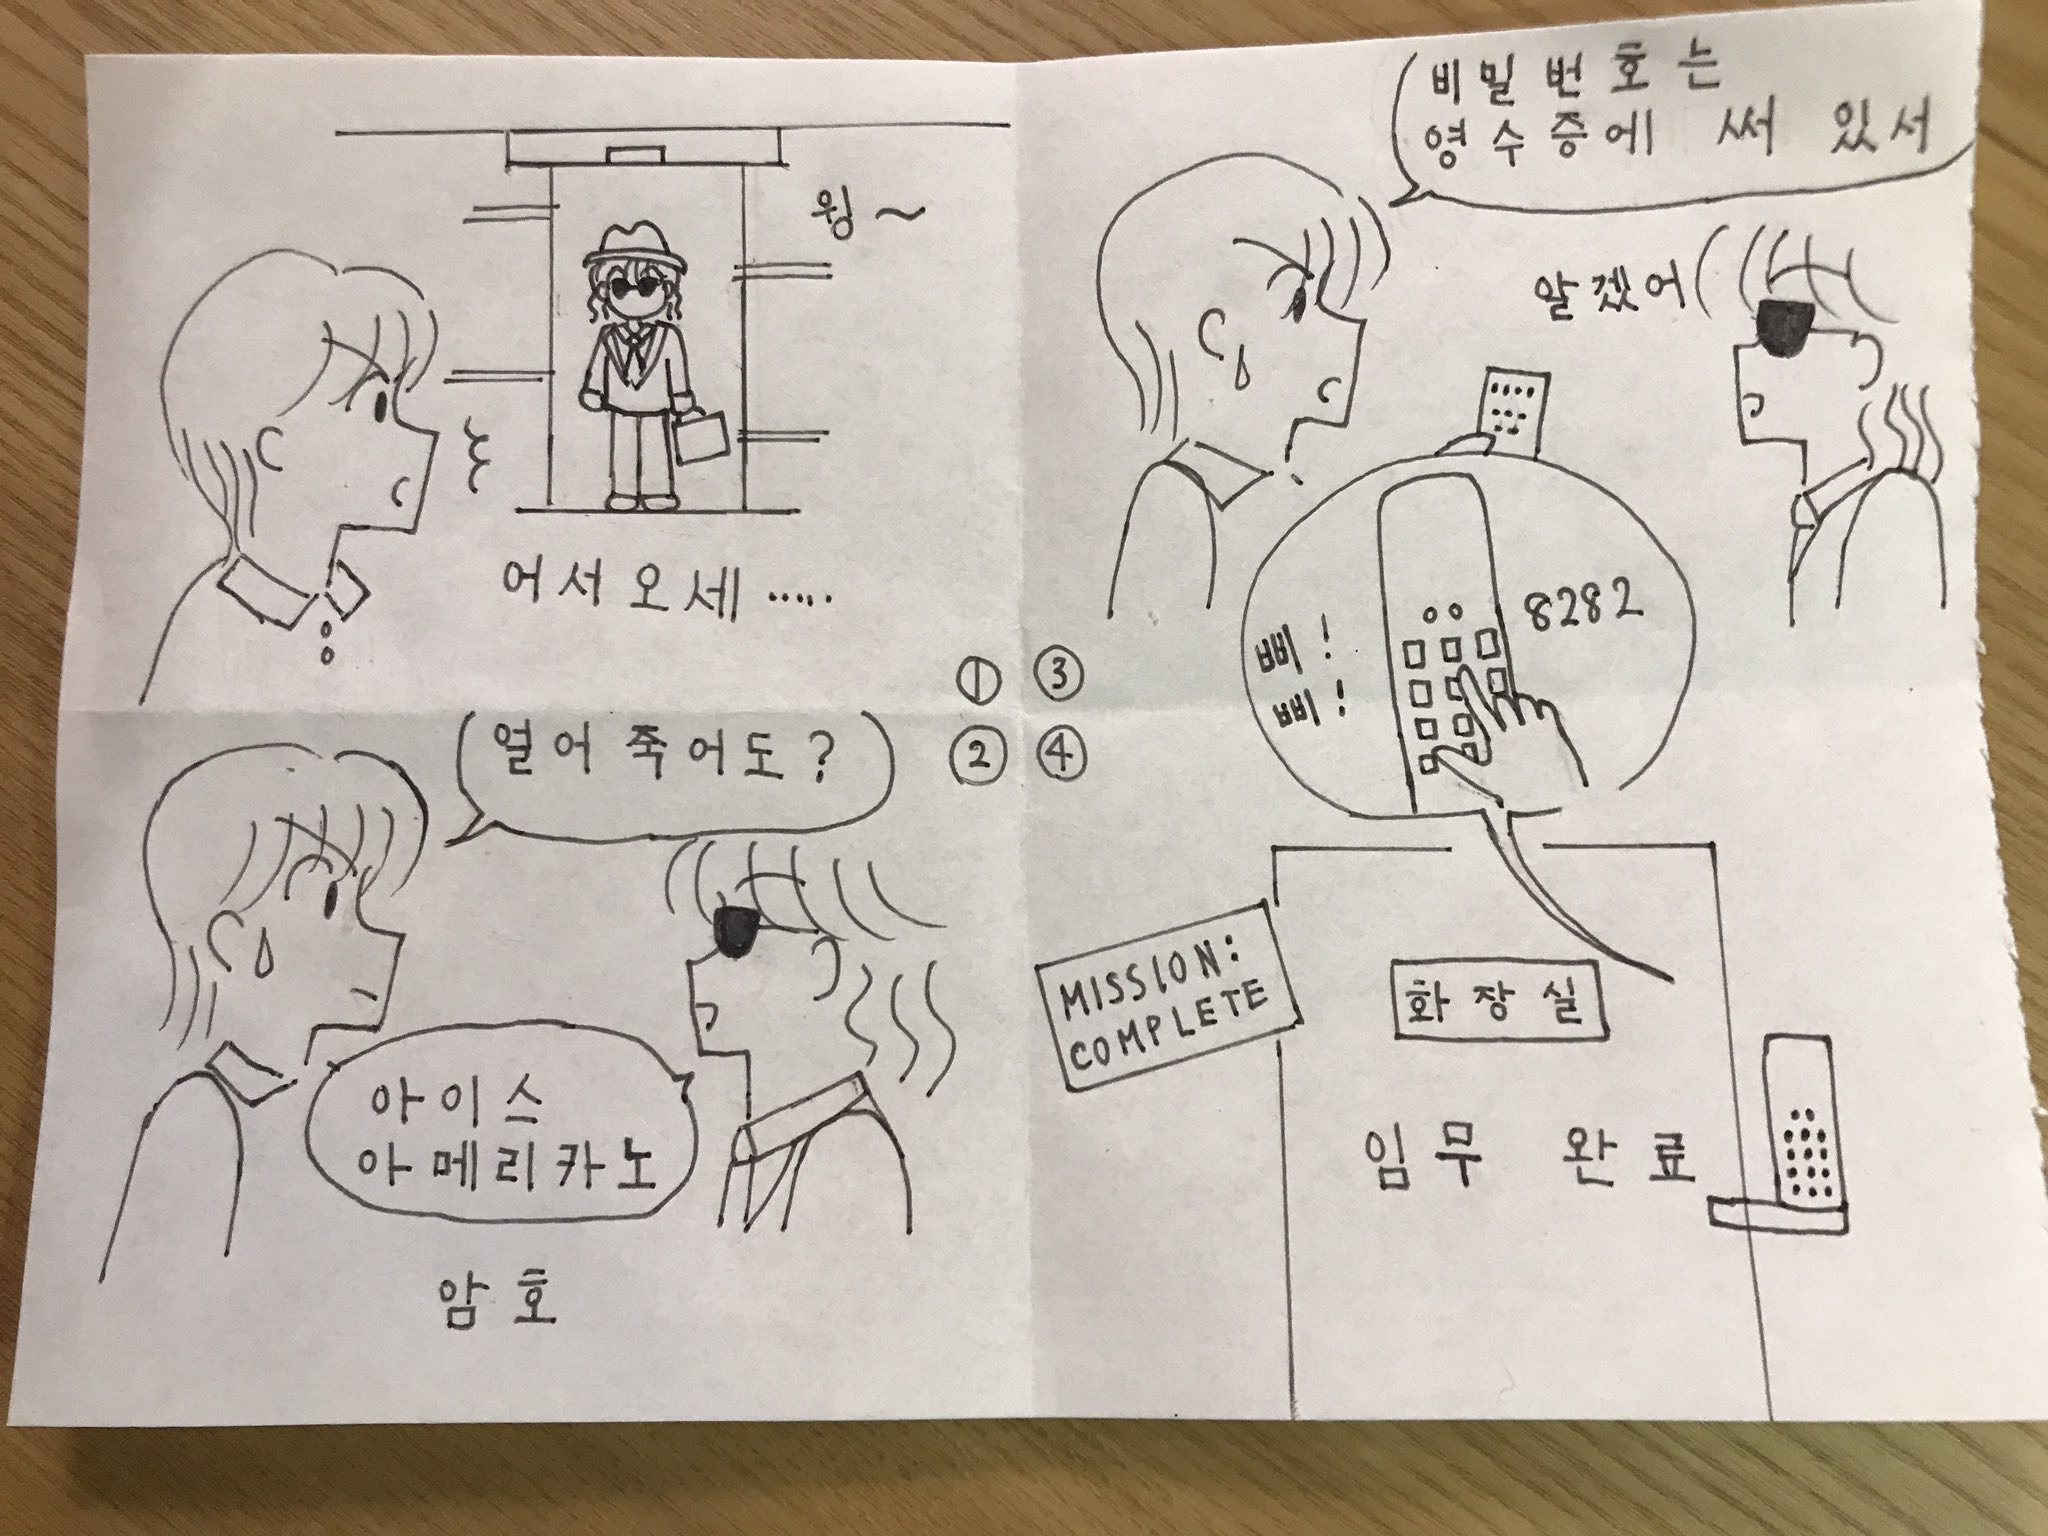 윙~
어서오세.....
①
열어죽어도?
아이스
아메리카노
암호
②
비밀번호는
영수증에 써 있서
알겠어
③
삐!
삐!
8282
④
MISSION:
COMPLETE
화장실
임무 완료